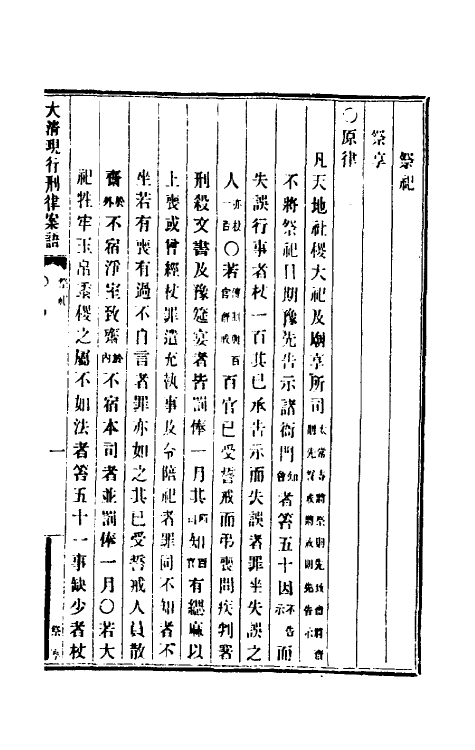 祭祀
祭享
〇原律
凡天地社稷大祀及廟享所司太常寺將祭則先致齋將齋則先誓戒將戒則先告示
不將祭祀日期豫先告示諸衙門知會者笞五十因不告示而
失誤行事者杖一百其已承告示而失誤者罪坐失誤之
人亦杖一百〇若傳制與百官齋戒百官已受誓戒而弔喪問疾判署
刑殺文書及豫筵宴者皆罰俸一月其所司知百官有緦麻以
上喪或曾經杖罪遣充執事及令陪祀者罪同不知者不
坐若有喪有過不自言者罪亦如之其已受誓戒人員散
齋於外不宿淨室致齋於內不宿本司者並罰俸一月〇若大
祀牲牢玉帛黍稷之屬不如法者笞五十一事缺少者杖
大清現行刑律案語
祭祀
一
祭享